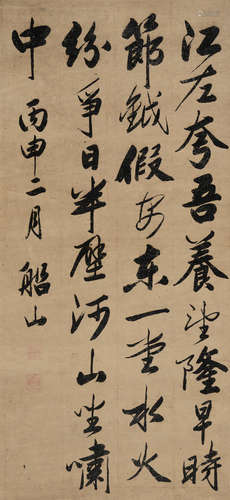 江左夸吾養望隆早時
節鉞假安東一堂水火
紛爭日半壁河山坐嘯
中 丙申二月 船山